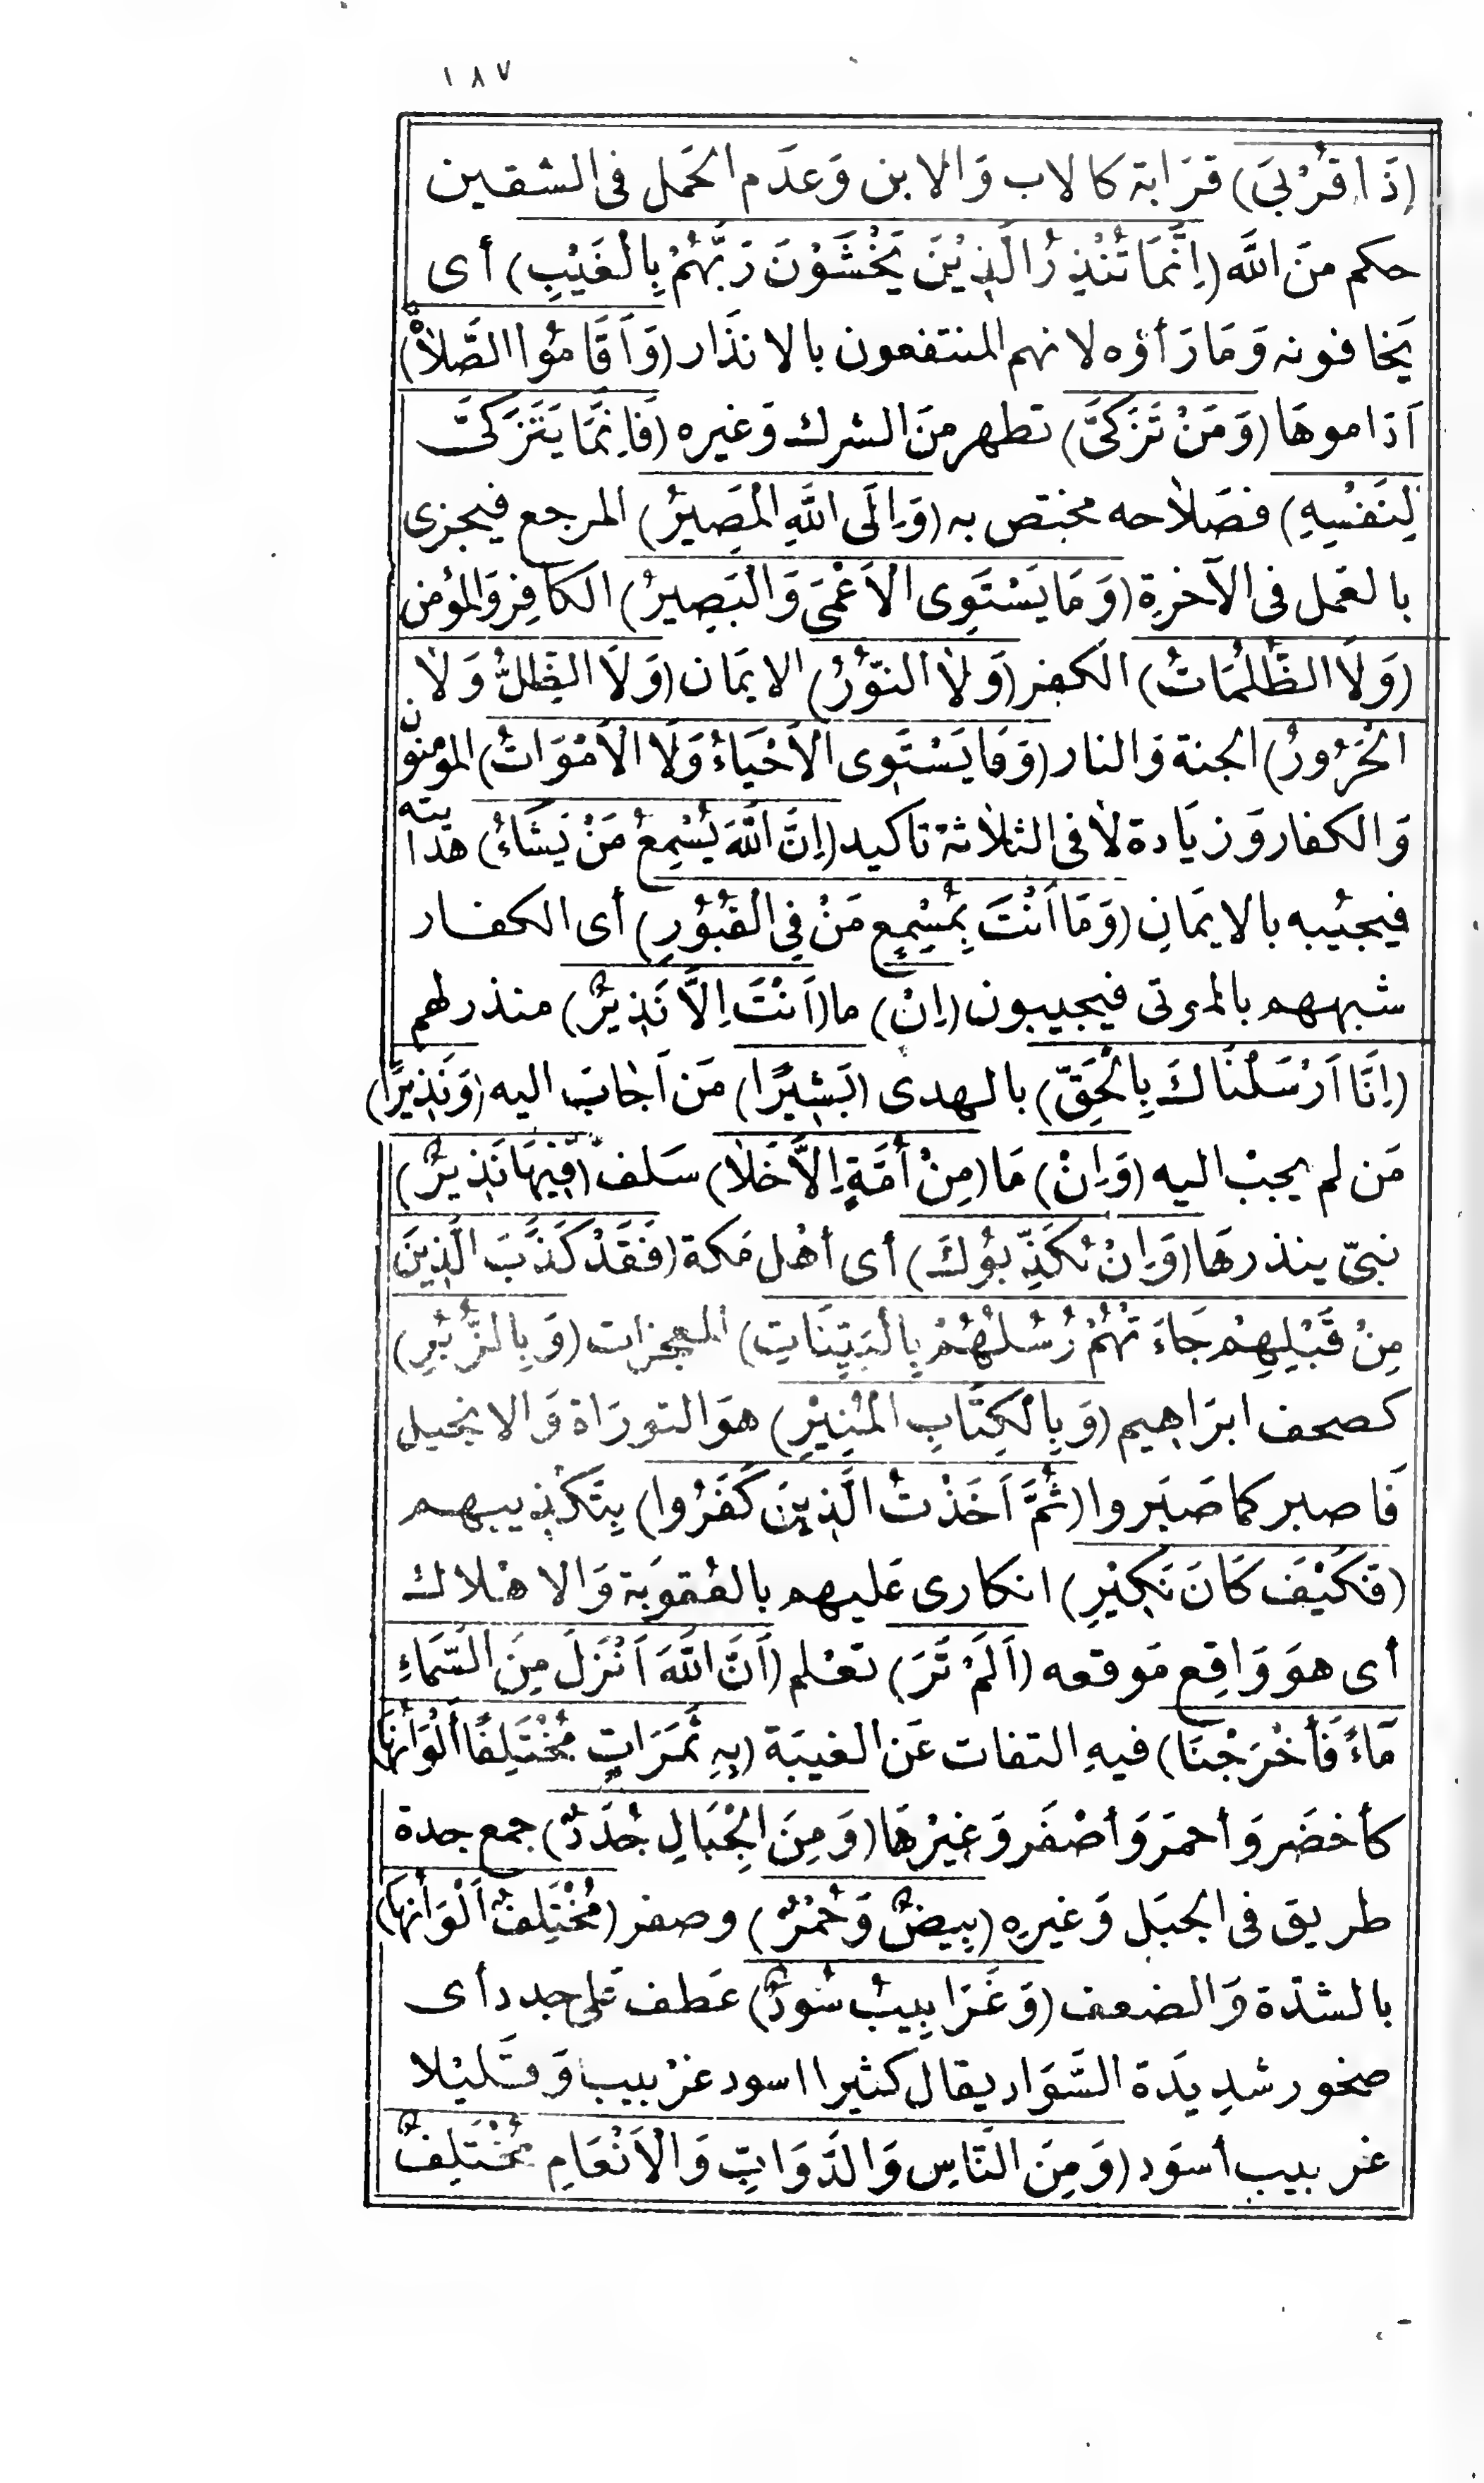 ١٨٧
(ذَا قُرْبىَ) قرَابة كالاب وَالابن وَعدَم الحَمل فى الشقين
حكم منَ اللَّه (اِنَّمَا تُنْذِرُ الَّذِيْنَ يَخْشَوْنَ رَبَّهُمْ بِالْغَيْبِ) أى
يَخافونه وَمَا رَأوْه لانهم المنتفعون بالانذَار (وَاَقَامُوا الصَّلاٰةَ)
اَدَاموهَا (وَمَنْ تَزَكىَّ) تطهر منَ الشرك وَغيره (فَاِنَّمَا يَتَزَكىَّ
لِنَفْسِهِ) فصَلاٰحه مختص به (وَاِلَى اللَّهِ المَصِيرُ) المرجع فيجزى
بالعَمل فى الآخرةِ (وَمَا يَسْتَوِى الْاَعْمَى وَالْبَصِيرُ) الكَافِر وَالمؤمن
(وَلَا الظُّلُمَاتُ) الكفر (وَلاٰ النّوُرُ) الايمَان (وَلَا الظِّلُّ وَلاٰ
الْحَرُورُ) الجنة وَالنار (وَمَا يَسْتَوِى الْاَحْيَاءُ وَلَا الْاَمْوَاتُ) المؤمنون
وَالكفار وَزيَادة لاٰ فى الثلاٰثة تاكيد (اِنَّ اللَّهَ يُسْمِعُ مَنْ يَشَاءُ) هدايته
فيجيْبه بالايمَانِ (وَمَا اَنْتَ بِمُسْمِعٍ مَنْ فِى الْقُبُوْرِ) أى الكفار
شبههم بالموتى فيجيبون (اِنْ) ما (اَنْتَ اِلَّا نَذِيرٌ) منذر لهم
(اِنَّا اَرْسَلْنَاكَ بِالْحَقِّ) بالهدى (بَشِيْرًا) مَن اَجٰابَ اليه (وَنَذِيرًا)
مَن لم يجبْ اليه (وَاِنْ) مَا (مِنْ أُمَّةٍ اِلاَّ خَلاٰ) سَلف (فِيْهَا نَذِيرٌ)
نبىّ ينذرهَا (وَاِنْ يُكَذِّبُوكَ) أى أهْل مَكة (فَقَدْ كَذَّبَ الَّذِينَ
مِنْ قَبْلِهِمْ جَاءَتْهُمْ رُسُلُهُمْ بِالْبَيِّنَاتِ) المعجزات (وَبِالزُّبُرِ)
كصحف ابرَاهيم (وَبِالْكِتَابِ الْمُنِيْرِ) هوَ التورَاة وَالانجيل
فَاصبر كما صَبَروا (ثُمَّ اَخَذْتُ الَّذِينَ كَفَرُوا) بِتَكذيبهم
(فَكَيْفَ كَانَ نَكِيْرِ) انكارى عَليهم بالعُقوبَة وَالاهْلاك
أى هوَ وَاقِع مَوقعه (اَلَمْ تَرَ) تعْلم (اَنَّ اللَّهَ اَنْزَلَ مِنَ السَّمَاءِ
مَاءً فَأَخْرَجْنَا) فيهِ التفات عَن الغيبَة (بِهِ ثَمَرَاتٍ مُخْتَلِفًا أَلْوَانُهَا)
كأخضَر وَأحمَر وَأصْفَر وَغيْرهَا (وَمِنَ الْجِبَالِ جُدَدٌ) جمع جدة
طريق فى الجبَل وَغيرهِ (بِيضٌ وَحُمْرٌ) وصفر (مُخْتَلِفٌ اَلْوَانُهَا)
بالشدّة وَالضعف (وَغَرَابِيبُ سُودٌ) عَطف عَلى جدد أى
صخور شدِيدَة السَّوَاد يقال كثيرا اسود غرْبيب وَقليْلا
غربيب أسوَد (وَمِنَ النَّاسِ وَالدَّوَابِّ وَالْاَنْعَامِ مُخْتَلِفٌ